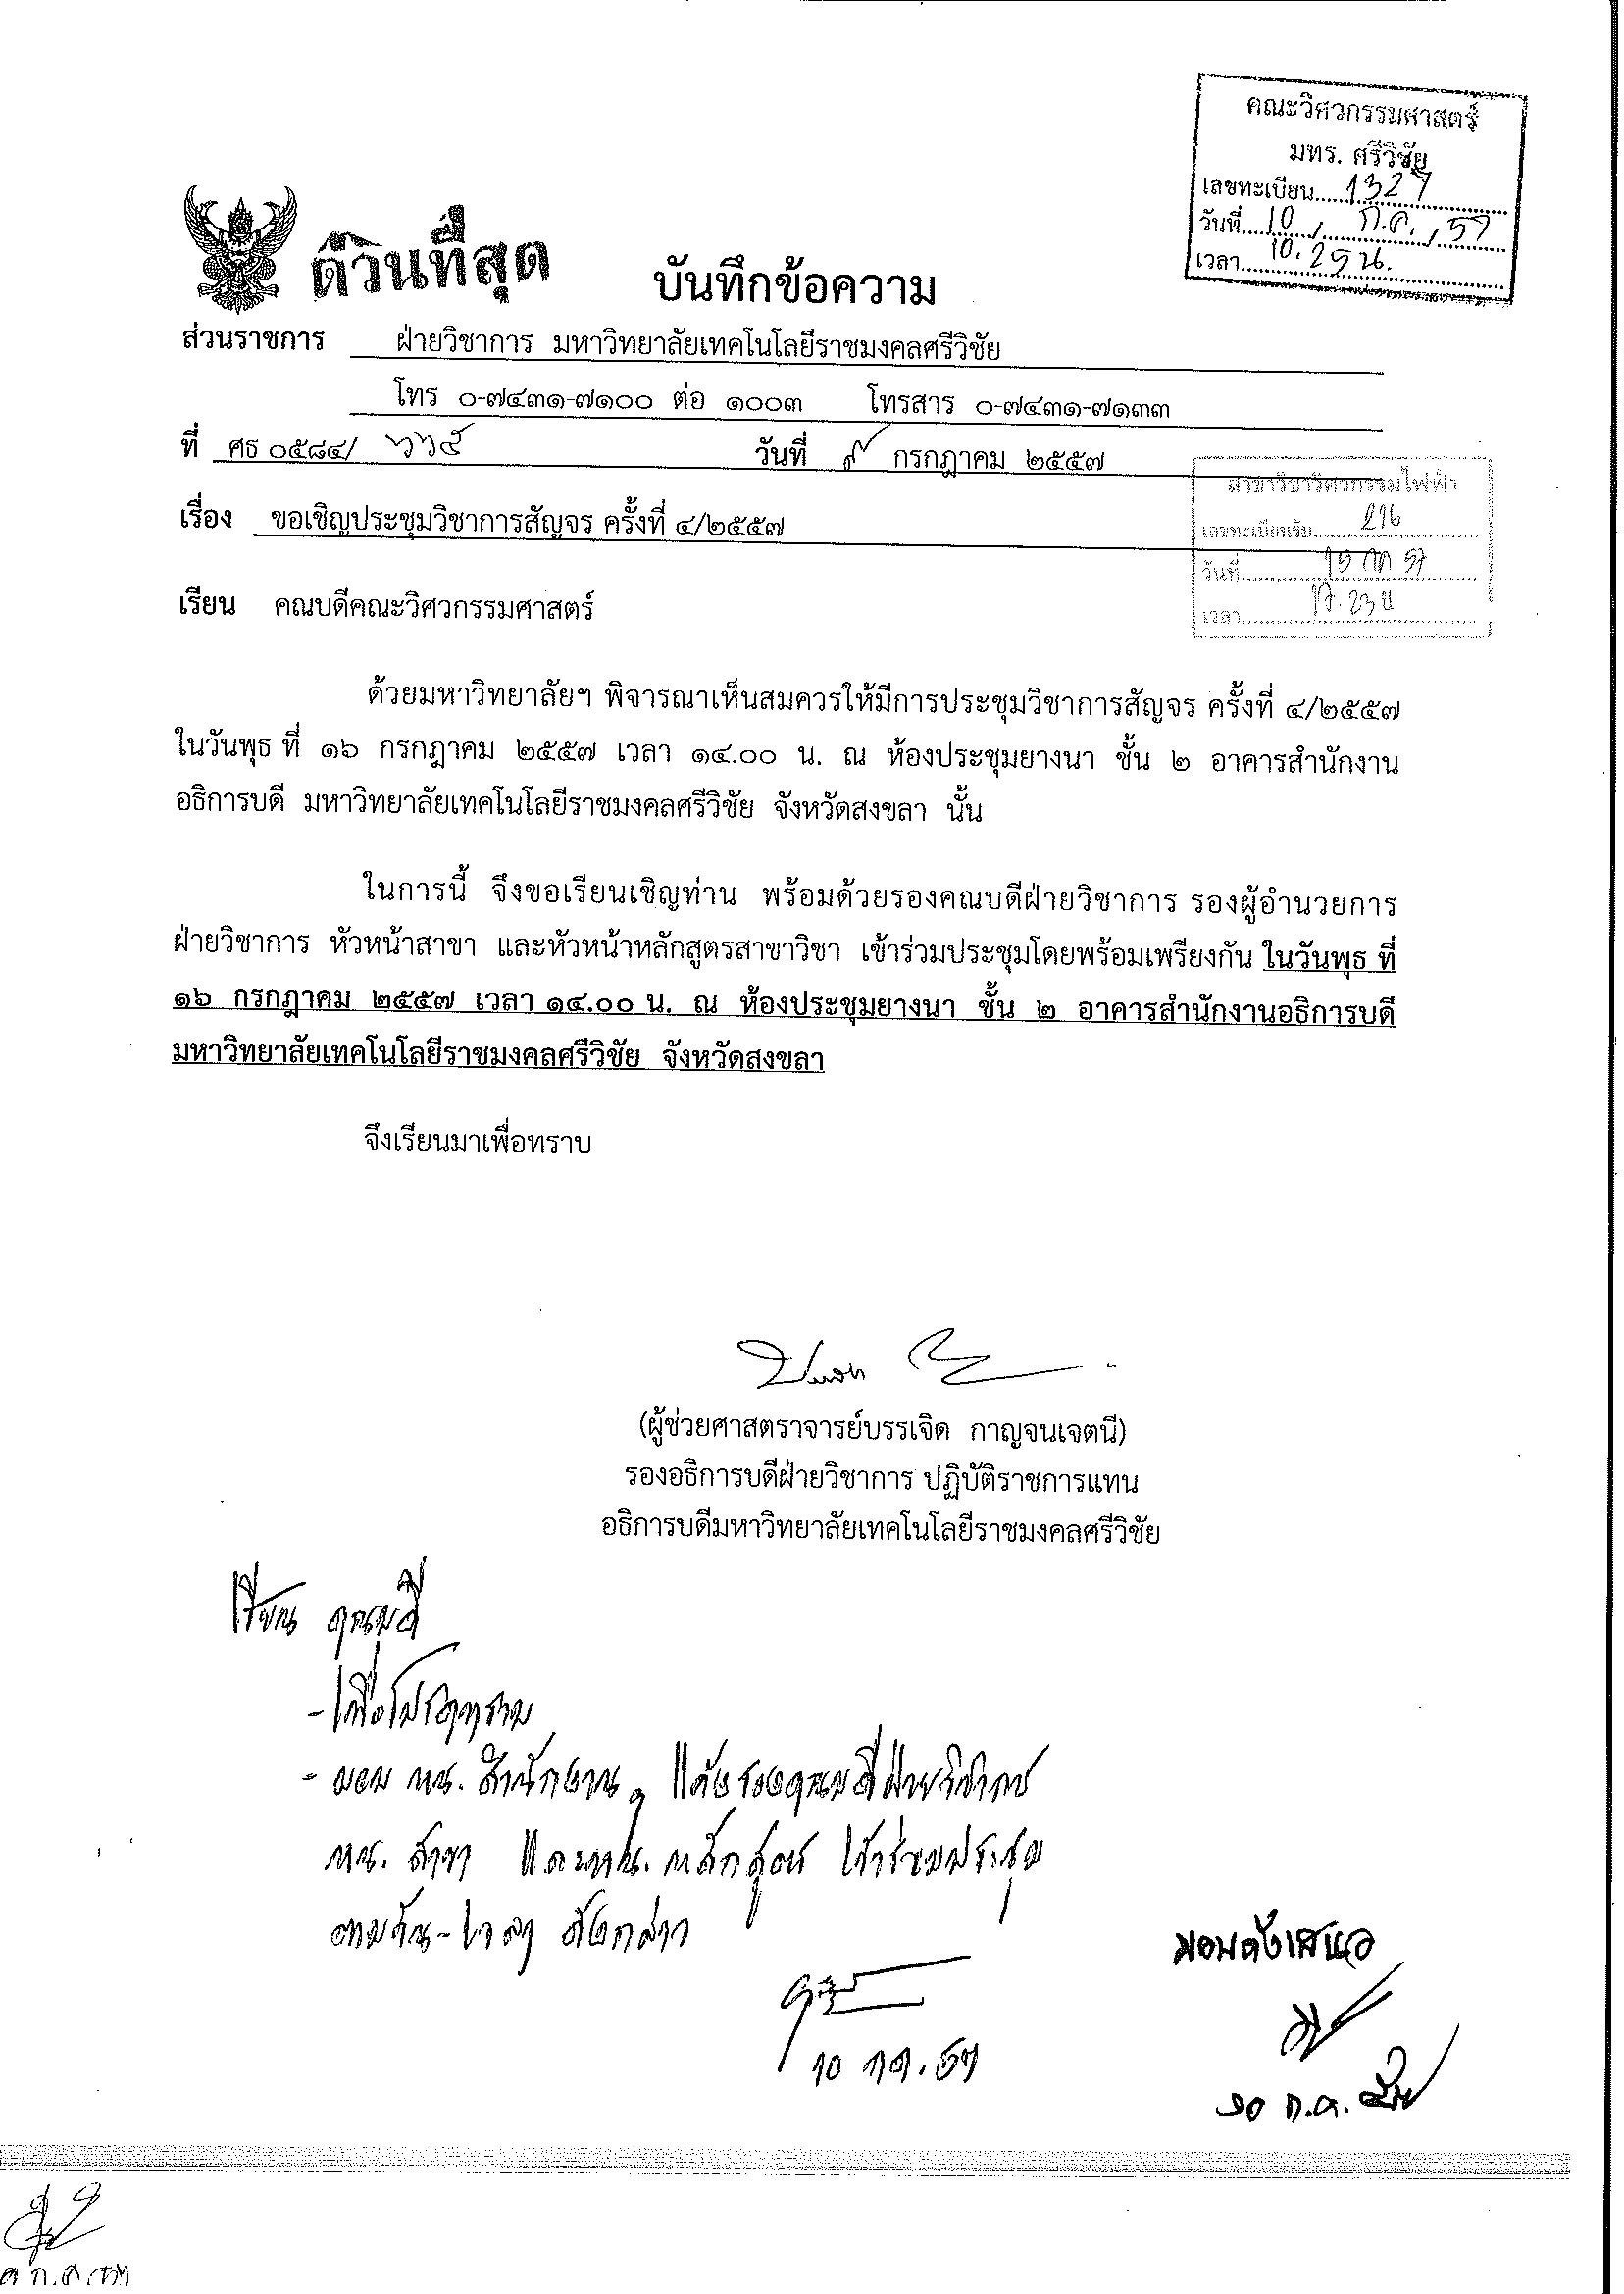 คณะวิศวกรรมศาสตร์
มทร. ศรีวิชัย
เลขทะเบียน 1327
วันที่ 10 / ก.ค. / 57
เวลา 10.25 น.
ด่วนที่สุด
บันทึกข้อความ
ส่วนราชการ ฝ่ายวิชาการ มหาวิทยาลัยเทคโนโลยีราชมงคลศรีวิชัย
โทร ๐-๗๔๓๑-๗๑๐๐ ต่อ ๑๐๐๓ โทรสาร ๐-๗๔๓๑-๗๑๓๓
ที่ ศธ ๐๕๘๔/ ๖๖๕ วันที่ ๙ กรกฎาคม ๒๕๕๗
สาขาวิชาวิศวกรรมไฟฟ้า
เลขทะเบียนรับ
วันที่
เวลา
เรื่อง ขอเชิญประชุมวิชาการสัญจร ครั้งที่ ๔/๒๕๕๗
เรียน คณบดีคณะวิศวกรรมศาสตร์
ด้วยมหาวิทยาลัยฯ พิจารณาเห็นสมควรให้มีการประชุมวิชาการสัญจร ครั้งที่ ๔/๒๕๕๗
ในวันพุธ ที่ ๑๖ กรกฎาคม ๒๕๕๗ เวลา ๑๔.๐๐ น. ณ ห้องประชุมยางนา ชั้น ๒ อาคารสำนักงาน
อธิการบดี มหาวิทยาลัยเทคโนโลยีราชมงคลศรีวิชัย จังหวัดสงขลา นั้น
ในการนี้ จึงขอเรียนเชิญท่าน พร้อมด้วยรองคณบดีฝ่ายวิชาการ รองผู้อำนวยการ
ฝ่ายวิชาการ หัวหน้าสาขา และหัวหน้าหลักสูตรสาขาวิชา เข้าร่วมประชุมโดยพร้อมเพรียงกัน ในวันพุธ ที่
๑๖ กรกฎาคม ๒๕๕๗ เวลา ๑๔.๐๐ น. ณ ห้องประชุมยางนา ชั้น ๒ อาคารสำนักงานอธิการบดี
มหาวิทยาลัยเทคโนโลยีราชมงคลศรีวิชัย จังหวัดสงขลา
จึงเรียนมาเพื่อทราบ
(ผู้ช่วยศาสตราจารย์บรรเจิด กาญจนเจตนี)
รองอธิการบดีฝ่ายวิชาการ ปฏิบัติราชการแทน
อธิการบดีมหาวิทยาลัยเทคโนโลยีราชมงคลศรีวิชัย
เรียน คณบดี
- เพื่อโปรดทราบ
- มอบ หน. สำนักงานฯ แจ้งรองคณบดีฝ่ายวิชาการ
หน. สาขา และหน. หลักสูตร เข้าร่วมประชุม
ตามวัน-เวลา ดังกล่าว
10 ก.ค. 57
มอบดังเสนอ
๑๐ ก.ค.